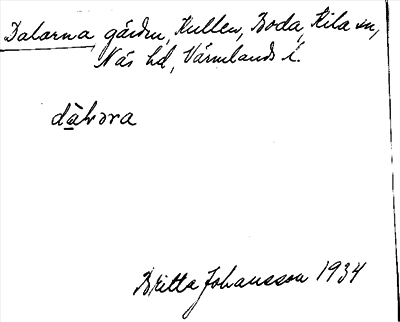 Dalarna, gården, Kullen, Boda, Kila sn,
Näs hd, Värmlands l.
Britta Johansson 1934